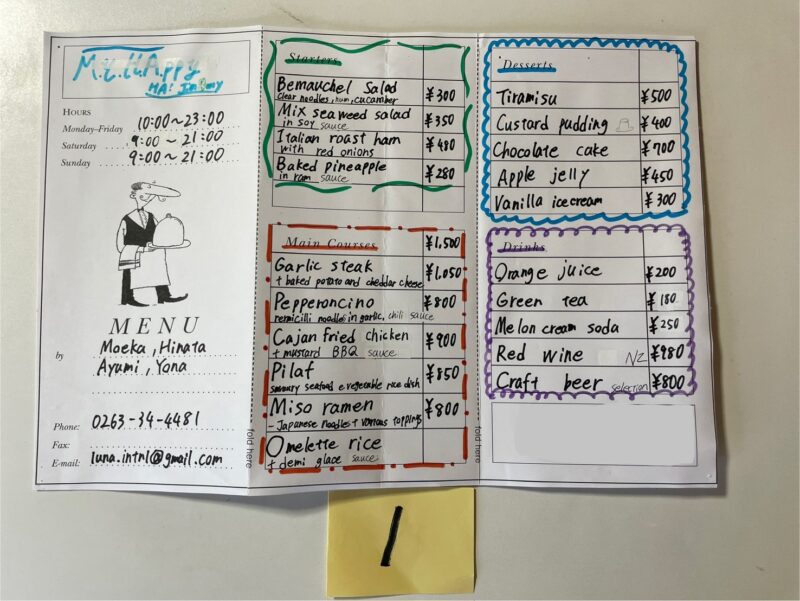 M.t.U.Appy
HOURS
Monday–Friday 10:00~23:00
Saturday 9:00~21:00
Sunday 9:00~21:00
MENU
by Moeka, Hinata
Ayumi, Yona
Phone: 0263-34-4481
Fax:
E-mail: luna.intnl@gmail.com
fold here
Starters
Bemauchel Salad ¥300
clear noodles, hum, cucamber
Mix seaweed salad ¥350
in soy sauce
Italian roast ham ¥480
with red onions
Baked pineapple ¥280
in ram sauce
Main Courses ¥1,500
Garlic steak ¥1,050
+ baked potato and cheddar cheese
Pepperoncino ¥800
remicilli noodles in garlic, chili sauce
Cajan fried chicken ¥900
+ mustard BBQ sauce
Pilaf ¥850
savoury seafood & vegetable rice dish
Miso ramen ¥800
- Japanese noodles + various toppings
Omelette rice
+ demi glace sauce
fold here
Desserts
Tiramisu ¥500
Custard pudding ¥400
Chocolate cake ¥700
Apple jelly ¥450
Vanilla icecream ¥300
Drinks
Orange juice ¥200
Green tea ¥180
Melon cream soda ¥250
Red wine NZ ¥980
Craft beer selection ¥800
1